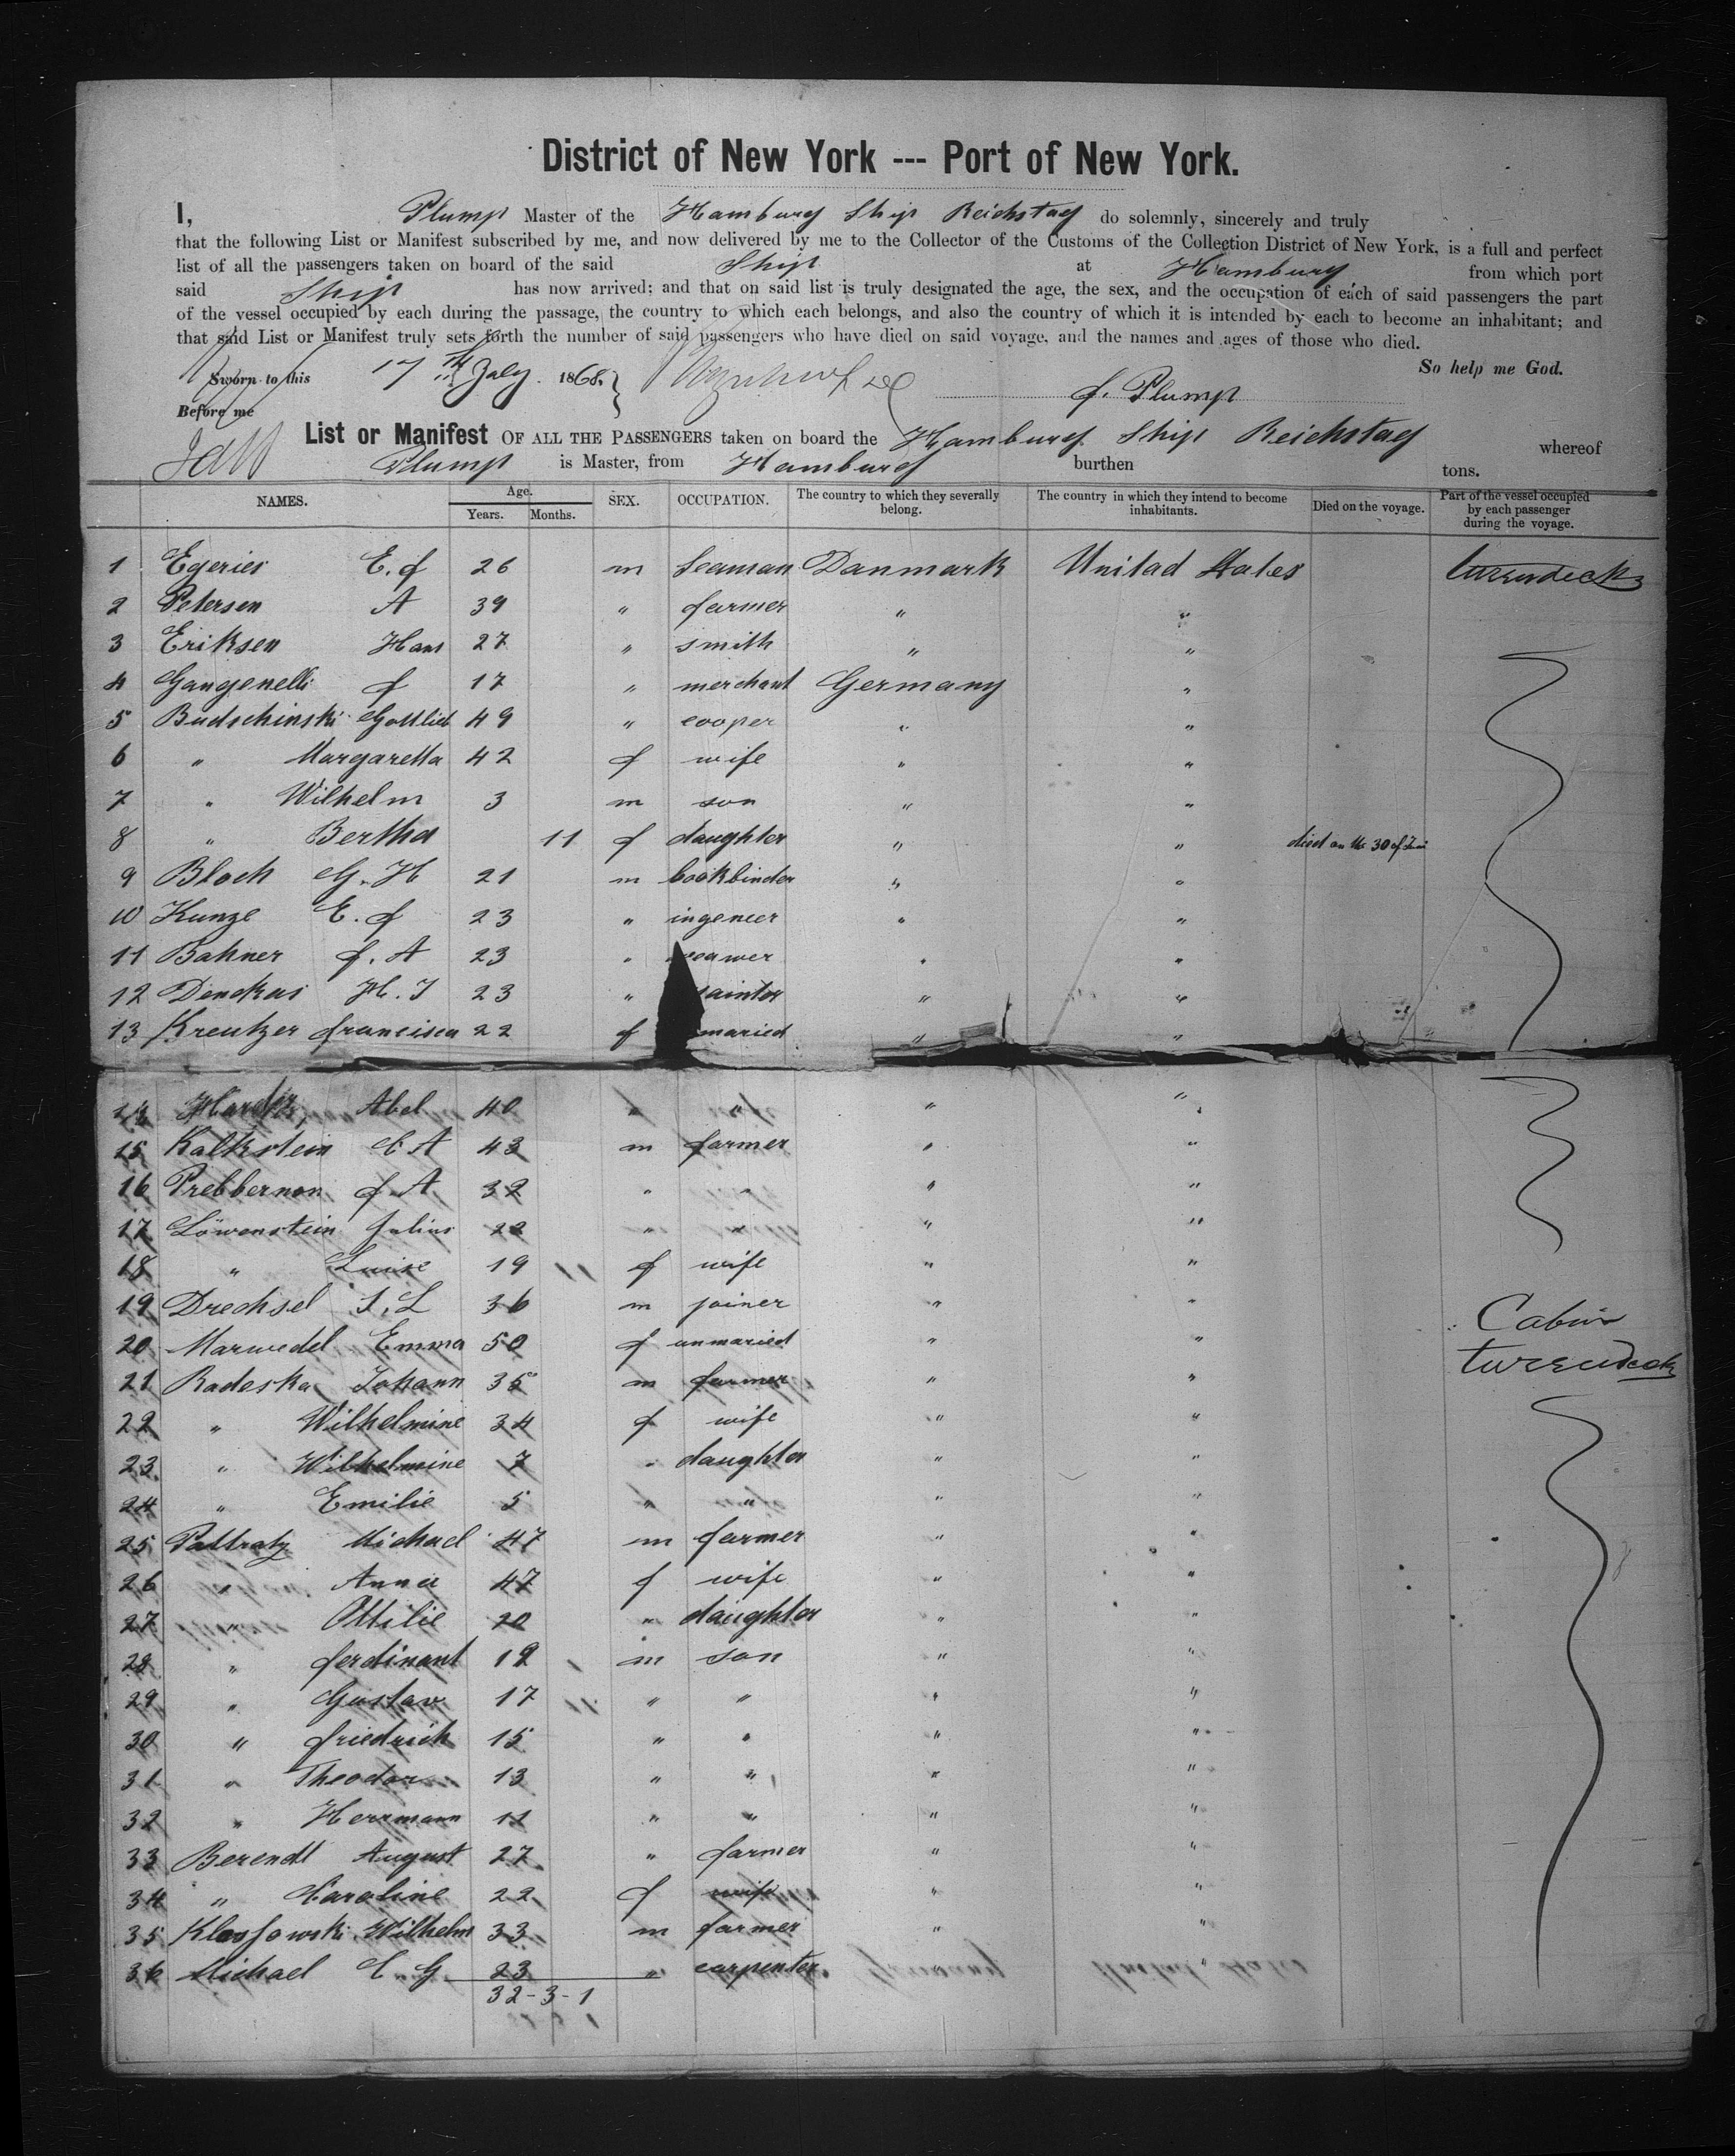 District of New York --- Port of New York.
I, Plump Master of the Hamburg Ship Reichstag do solemnly, sincerely and truly
that the following List or Manifest subscribed by me, and now delivered by me to the Collector of the Customs of the Collection District of New York, is a full and perfect
list of all the passengers taken on board of the said Ship at Hamburg from which port
said Ship has now arrived; and that on said list is truly designated the age, the sex, and the occupation of each of said passengers the part
of the vessel occupied by each during the passage, the country to which each belongs, and also the country of which it is intended by each to become an inhabitant; and
that said List or Manifest truly sets forth the number of said passengers who have died on said voyage, and the names and ages of those who died.
So help me God.
Sworn to this 17th July 1868.
f. Plump
Before me
List or Manifest OF ALL THE PASSENGERS taken on board the Hamburg Ship Reichstag whereof
Plump is Master, from Hamburg burthen tons.
NAMES. Age. Years. Months. SEX. OCCUPATION. The country to which they severally belong. The country in which they intend to become inhabitants. Died on the voyage. Part of the vessel occupied by each passenger during the voyage.
1 Egeries E. f 26 m Seaman Danmark Unitad States
2 Petersen A 39 " farmer " "
3 Eriksen Hans 27 " smith " "
4 Gangenelli f 17 " merchant Germany "
5 Budschinski Gottlieb 49 " cooper " "
6 " Margaretta 42 f wife " "
7 " Wilhelm 3 m son " "
8 " Bertha 11 f daughter " " died on the 30 of
9 Bloch G. H 21 m bookbinder " "
10 Kunze E. f 23 " ingeneer " "
11 Bahner f. A 23 " " "
12 Denckas H. J 23 " " "
13 Kreutzer francisca 22 f maried " "
14 Harder Abel 40 " " " "
15 Kalkstein C A 43 m farmer " "
16 Prebbernon f. A 32 " " " "
17 Löwenstein Julius 22 " " " "
18 " Luise 19 f wife " "
19 Drechsel J. L 36 m joiner " " Cabin
20 Marwedel Emma 50 f unmaried " "
21 Radeska Johann 35 m farmer " "
22 " Wilhelmine 34 f wife " "
23 " Wilhelmine 7 " daughter " "
24 " Emilie 5 " " " "
25 Pattratz Michael 47 m farmer " "
26 " Anna 47 f wife " "
27 " Ottilie 20 " daughter " "
28 " ferdinant 19 m son " "
29 " Gustav 17 " " " "
30 " friedrich 15 " " " "
31 " Theodor 13 " " " "
32 " Herrmann 11 " " " "
33 Berendt August 27 " farmer " "
34 " Caroline 22 f wife " "
35 Klossowski Wilhelm 33 m farmer " "
36 Michael C. G 23 " carpenter "
32 - 3 - 1